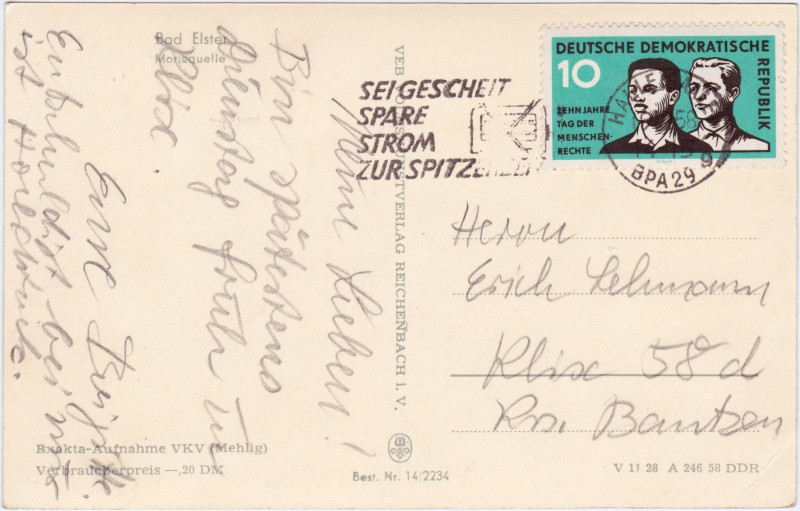 Bad Elster
Moritzquelle
Meine Lieben!
Bin spätestens
Dienstag früh in
Klix
Eure Brigitte.
Entschuldigt bei mir
ist Hochdruck.
VEB VOLKSKUNSTVERLAG REICHENBACH i. V.
Exakta-Aufnahme VKV (Mehlig)
Verbraucherpreis —,20 DM
Best. Nr. 14/2234
SEI GESCHEIT
SPARE
STROM
ZUR SPITZENZEIT
DEUTSCHE DEMOKRATISCHE
REPUBLIK
10
ZEHN JAHRE
TAG DER
MENSCHEN-
RECHTE
HALLE
58
BPA 29
9
Herrn
Erich Lehmann
Klix 58 d
Krs. Bautzen
V 11 28 A 246 58 DDR